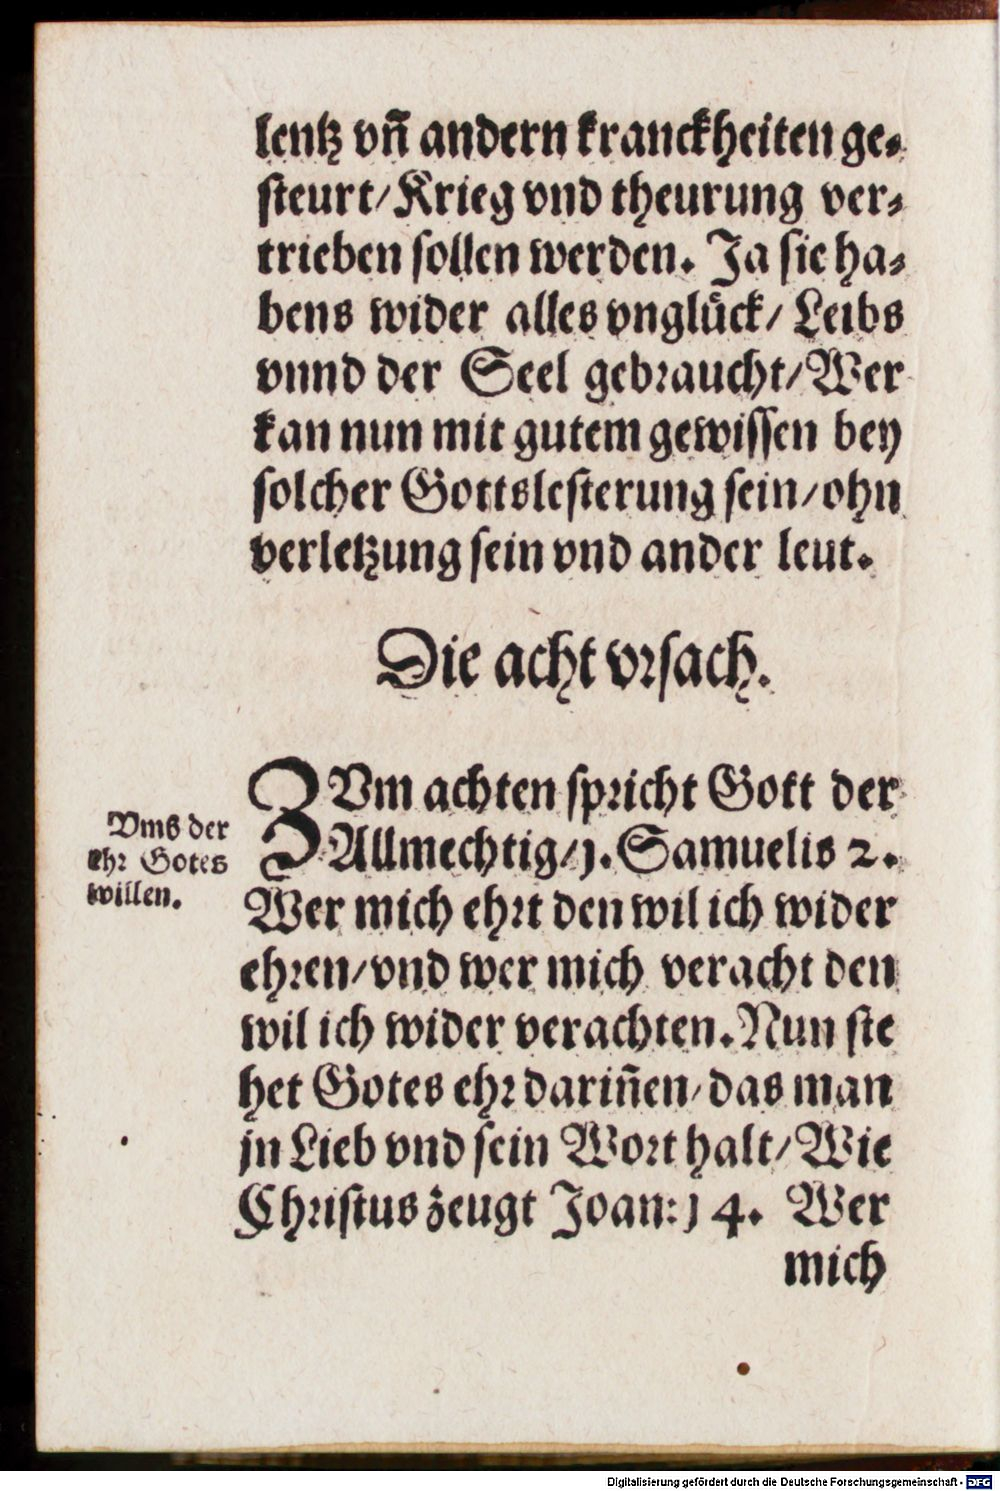 lentz vn̄ andern kranckheiten ge⸗
steurt/ Krieg vnd theurung ver⸗
trieben sollen werden. Ja sie ha⸗
bens wider alles vnglück/ Leibs
vnnd der Seel gebraucht/ Wer
kan nun mit gutem gewissen bey
solcher Gottslesterung sein/ ohn
verletzung sein vnd ander leut.
Die acht vrsach.
ZVm achten spricht Gott der
Allmechtig/ 1. Samuelis 2.
Wer mich ehrt den wil ich wider
ehren/ vnd wer mich veracht den
wil ich wider verachten. Nun ste
het Gotes ehr darin̄en/ das man
jn Lieb vnd sein Wort halt/ Wie
Christus zeugt Joan: 14. Wer
mich
Vms der
ehr Gotes
willen.
Digitalisierung gefördert durch die Deutsche Forschungsgemeinschaft - DFG